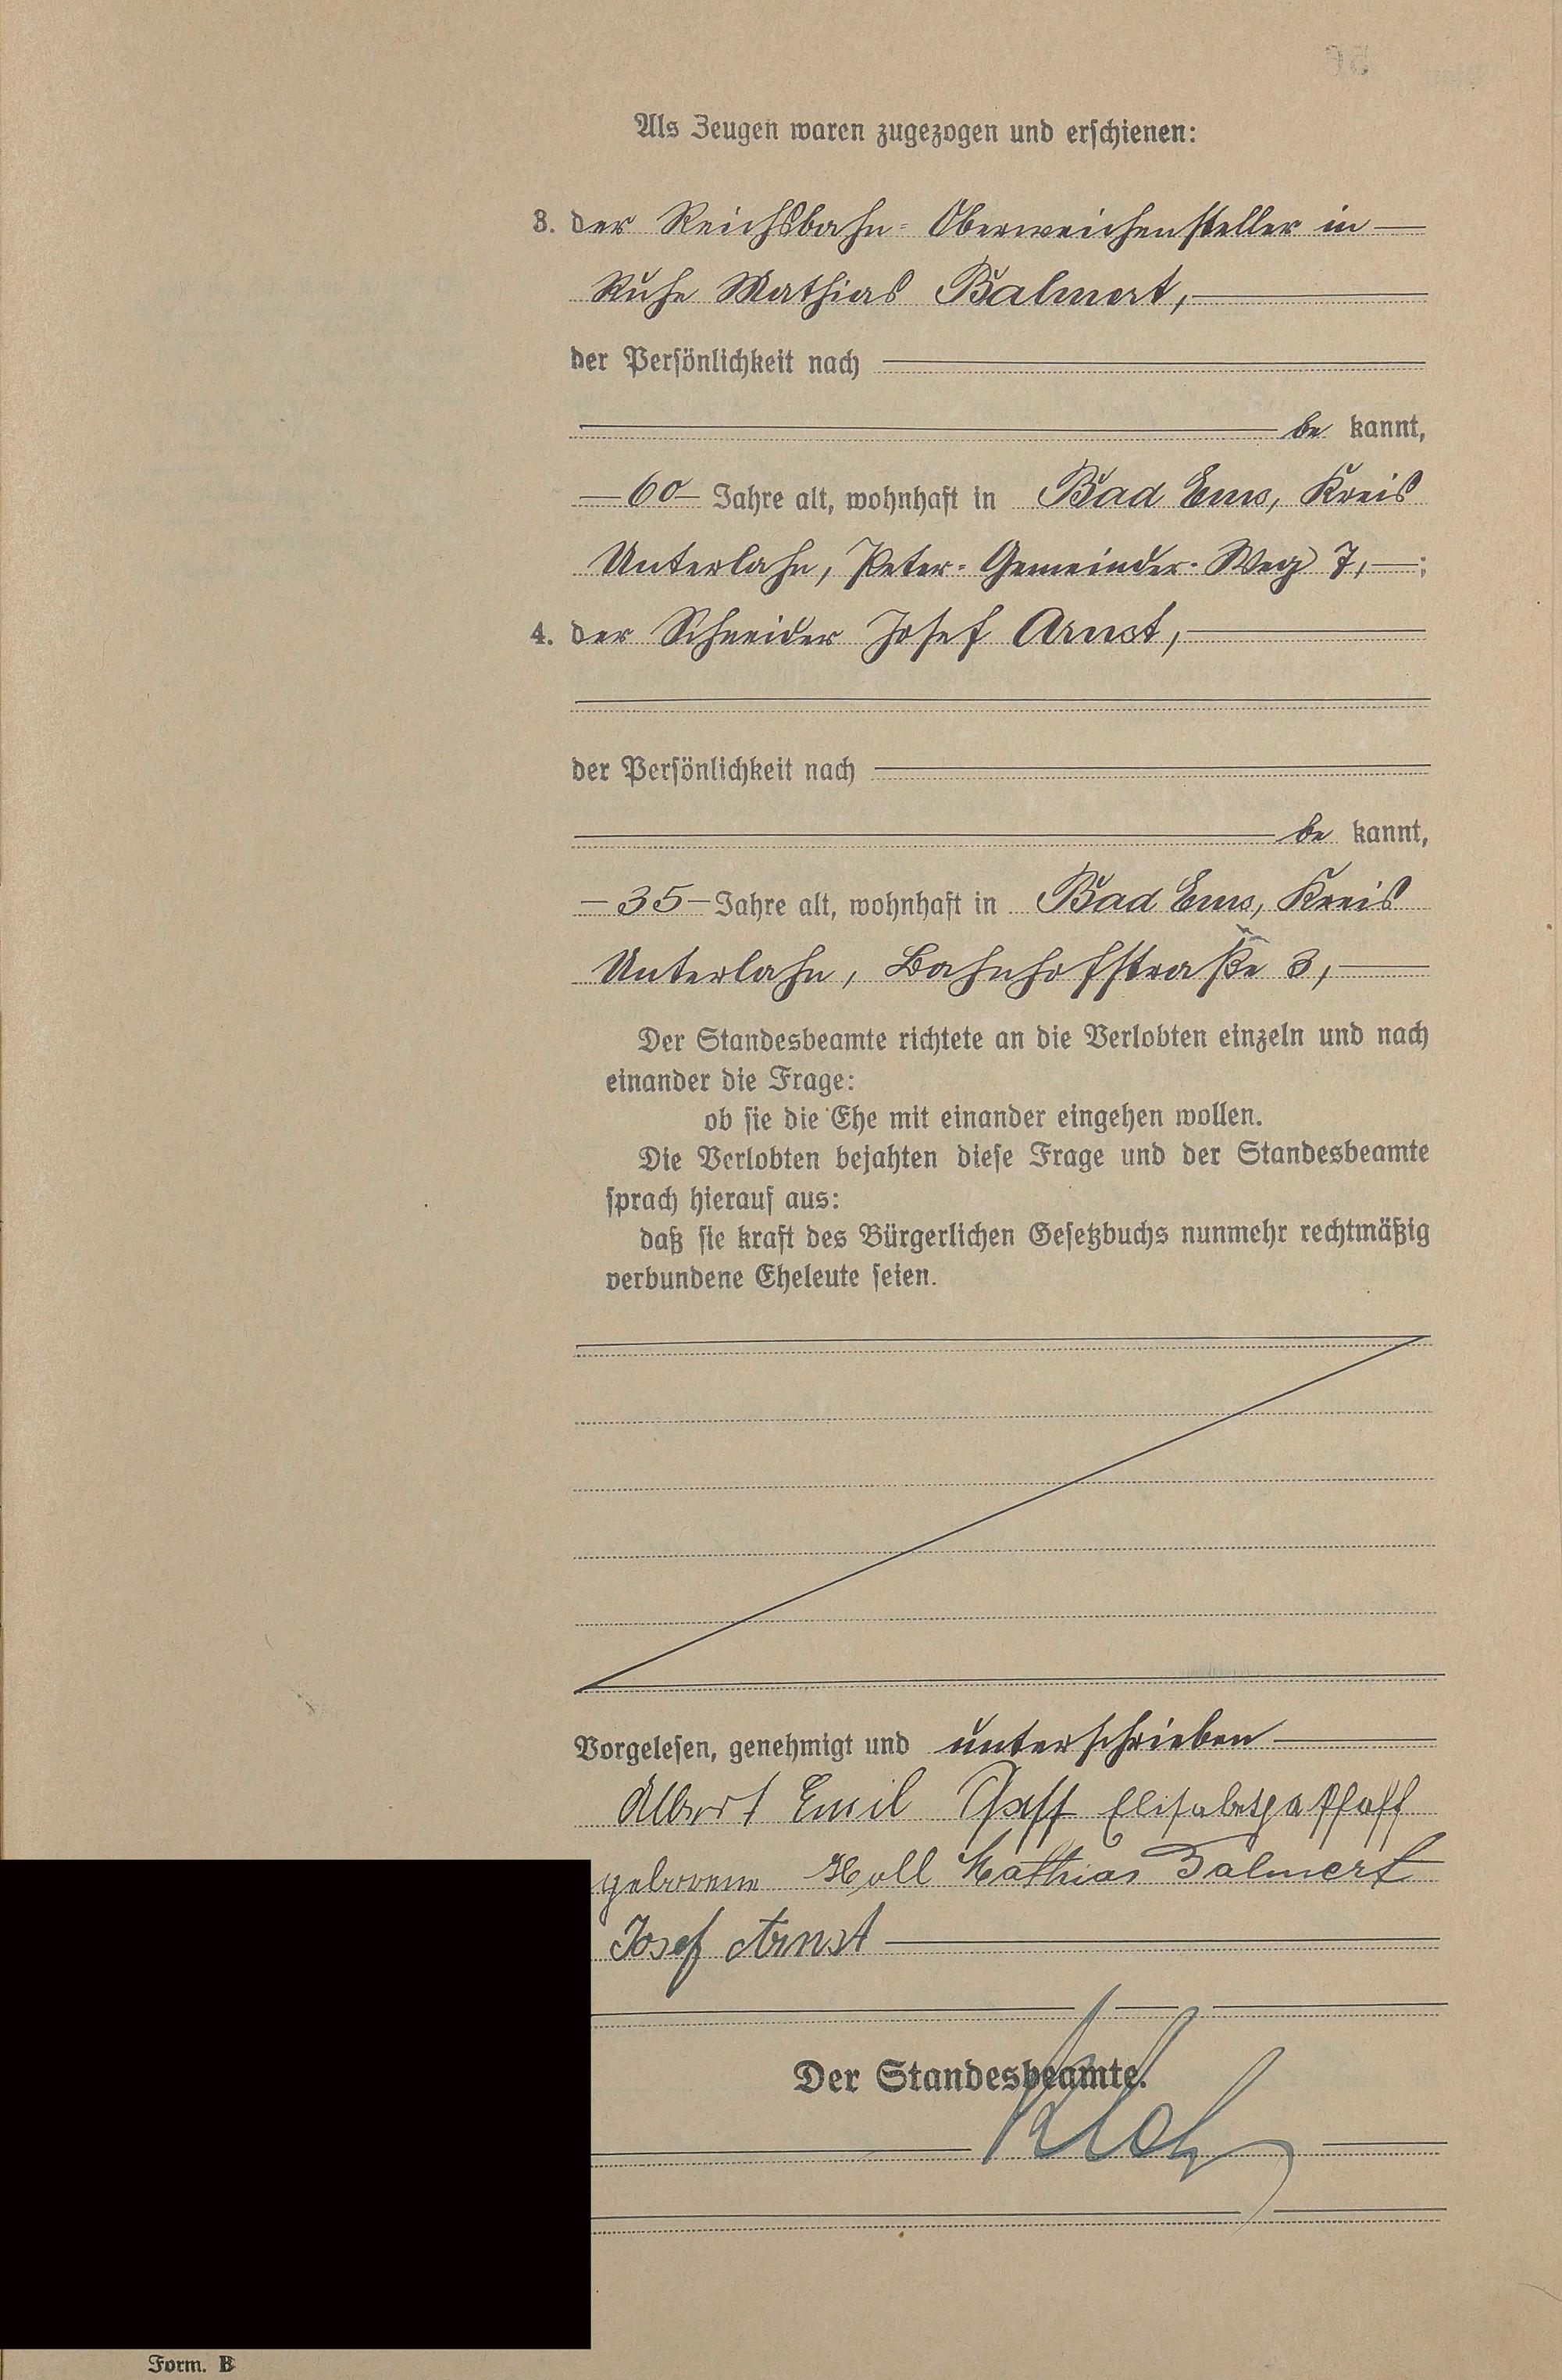 Als Zeugen waren zugezogen und erschienen:
3. der Reichsbahn-Oberweichensteller in
Ruhe Mathias Balmert,
der Persönlichkeit nach
be kannt,
60 Jahre alt, wohnhaft in Bad Ems, Kreis
Unterlahn, Peter-Gemeinder-Weg 7, ;
4. der Schneider Josef Arnst,
der Persönlichkeit nach
be kannt,
35 Jahre alt, wohnhaft in Bad Ems, Kreis
Unterlahn, Bahnhofstraße 3,
Der Standesbeamte richtete an die Verlobten einzeln und nach
einander die Frage:
ob sie die Ehe mit einander eingehen wollen.
Die Verlobten bejahten diese Frage und der Standesbeamte
sprach hierauf aus:
daß sie kraft des Bürgerlichen Gesetzbuchs nunmehr rechtmäßig
verbundene Eheleute seien.
Vorgelesen, genehmigt und unterschrieben
Albert Emil Pfaff Elisabetha Pfaff
geborene Holl Mathias Balmert
Josef Arnst
Der Standesbeamte.
Form. B